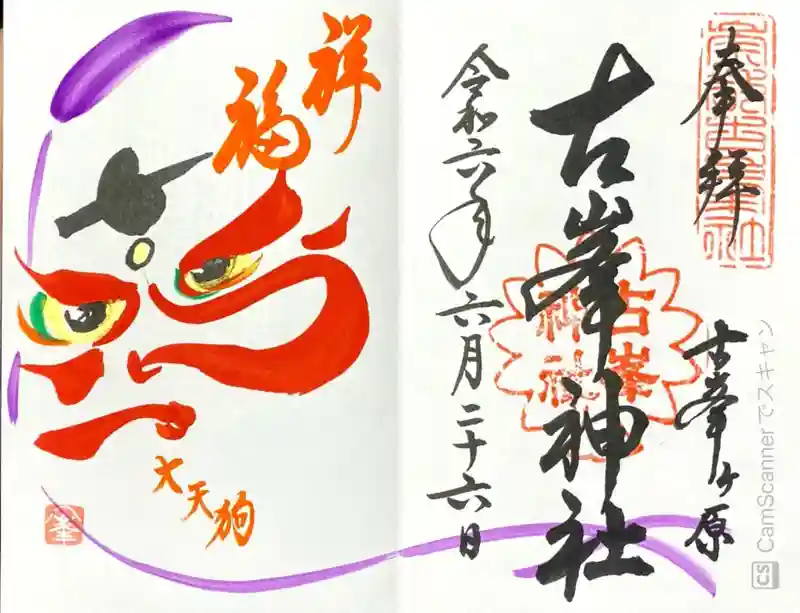 奉拝
古峯ヶ原
古峯神社
古峯
神社
令和六年六月二十六日
祥
福
大天狗
峯
CamScannerでスキャン
CS